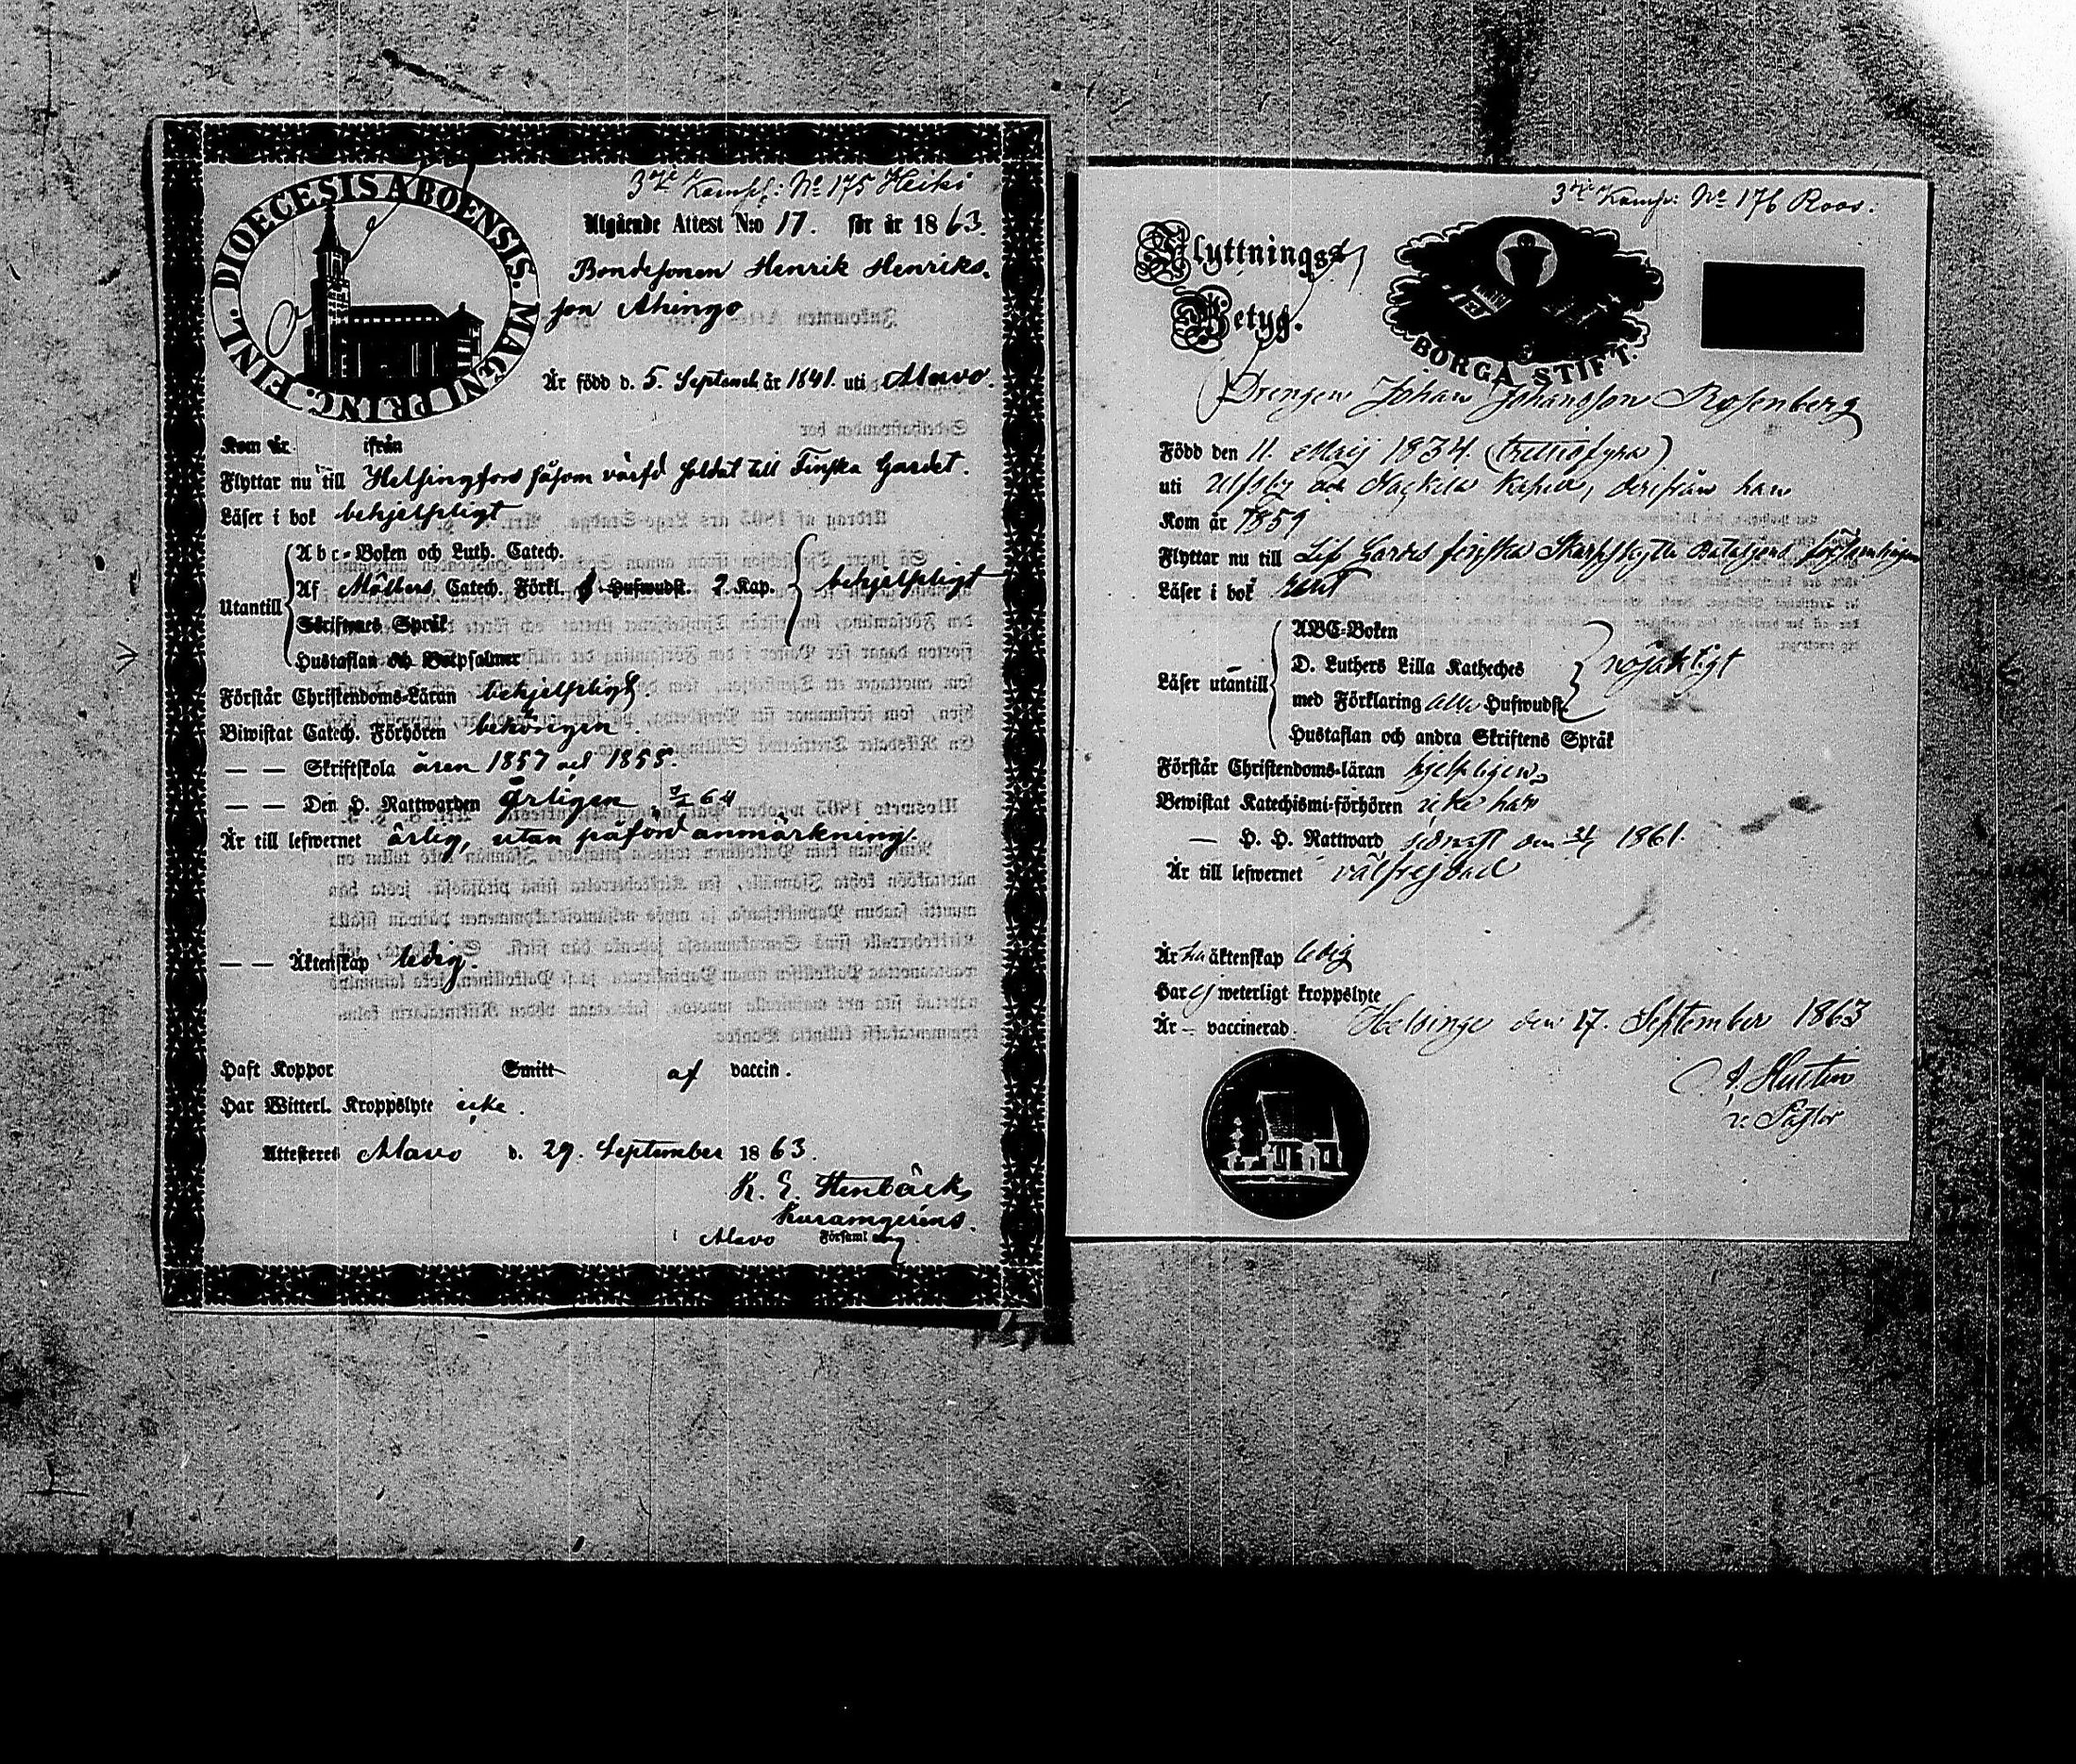 DIOECESIS ABOENSIS. MAGNI PRINC. FINL.
3dje Komp: No 175 Heiki
Utgående Attest N:o 17. för år 1863.
Bondesonen Henrik Henriks-
son Ahingo
Är född d. 5. Septemb. år 1841. uti Alavo.
Kom år ifrån
Flyttar nu till Helsingfors såsom värfd soldat till Finska Gardet.
Läser i bok behjelpligt
Utantill
Abc-Boken och Luth. Catech.
Af Möllers Catech. Förkl. Hufwudst. 2 Kap. behjelpligt
Skriftenes Språk
Hustaflan och Botpsalmer
Förstår Christendoms-Läran behjelpligt
Biwistat Catech. Förhören behörigen.
— — Skriftskola åren 1857 och 1858.
— — Den H. Nattwarden årligen
Är till lefwernet ärlig, utan påförd anmärkning.
— — Äktenskap ledig.
Haft Koppor Smitt af vaccin.
Har Witterl. Kroppslyte icke.
Attesterer Alavo d. 29. September 1863.
K. E. Stenbäck
i Alavo Församling
3dje Komp: No 176 Roos.
Flyttnings-
Betyg.
BORGÅ STIFT.
Drengen Johan Johansson Rosenberg
Född den 11. Maij 1834. (trettiofyra)
uti Ulfsby och kapell, derifrån han
Kom år 1859
Flyttar nu till Lif Gardes finska Skarpskytte Bataljons församlingen
Läser i bok rent
Läser utantill
ABC-Boken
D. Luthers Lilla Katheches
med Förklaring alla Hufwudst. nöjaktigt
Hustaflan och andra Skriftens Språk
Förstår Christendoms-läran hjelpligen
Bewistat Katechismi-förhören icke här
— H. H. Nattward sednast den 1861.
Är till lefwernet välfrejdad
Är för äktenskap ledig
Har ej weterligt kroppslyte
Är — vaccinerad.
Helsinge den 17. September 1863
v: Pastor